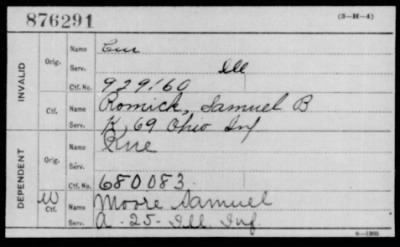 876291
(3-M-4)
Name
Serv. Ill
Orig.
Ctf. No. 929160
INVALID
Name Romick, Samuel B
Ctf.
Serv. K, 69 Ohio Inf
Name Rue
Orig.
Serv.
DEPENDENT
Ctf. No. 680083
W Name Moore Samuel
Ctf.
Serv. A - 25 - Ill. Inf.